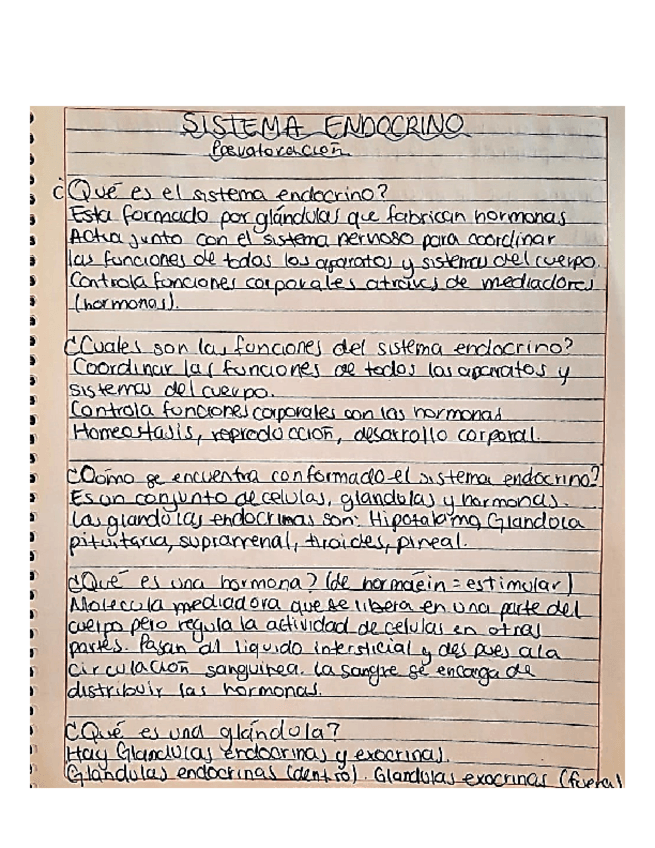 SISTEMA ENDOCRINO
¿Qué es el sistema endocrino?
Esta formado por glándulas que fabrican hormonas
Actua junto con el sistema nervoso para coordinar
las funciones de todos los aparatos y sistemas del cuerpo.
Controla funciones corporales atraves de mediadores
(hormonas).
¿Cuales son las funciones del sistema endocrino?
Coordinar las funciones de todos los aparatos y
sistemas del cuerpo.
Controla funciones corporales con las hormonas
Homeostasis, reproducción, desarrollo corporal.
¿Cómo se encuentra conformado el sistema endocrino?
Es un conjunto de celulas, glandulas y hormonas.
Las glandulas endocrinas son: Hipotalamo, Glandula
pituitaria, suprarrenal, tiroides, pineal.
¿Qué es una hormona? (de hormaein = estimular)
Molecula mediadora que se libera en una parte del
cuerpo pero regula la actividad de celulas en otras
partes. Pasan al liquido intersticial y des pues a la
circulación sanguinea. La sangre se encarga de
distribuir las hormonas.
¿Qué es una glándula?
Hay Glandulas endocrinas y exocrinas.
Glandulas endocrinas (dentro). Glandulas exocrinas (fuera)